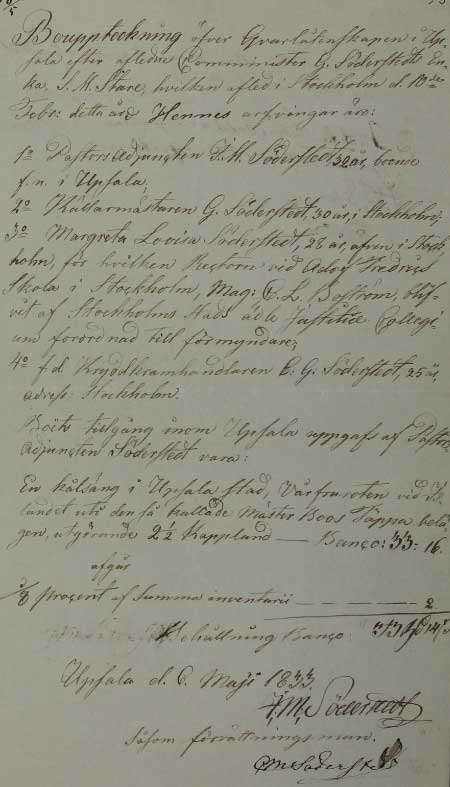 Bouppteckning öfver Qvarlåtenskapen i Up-
sala efter aflidne Comminister G. Söderstedts En-
ka, S. M. Stare, hvilken afled i Stockholm d. 10de
Febr: detta år. Hennes arfvingar äro:
1o Pastors Adjunkten J. M. Söderstedt, 32 år, boende
f. n. i Upsala,
2o Källarmästaren G. Söderstedt, 30 år, i Stockholm;
3o Margreta Lovisa Söderstedt, 28 år, äfven i Stock-
holm, för hvilken Rectorn vid Adolf Fredrics
Skola i Stockholm, Mag: C. L. Boström, blif-
vit af Stockholms Stads ädle Justitiæ Collegi-
um förordnad till förmyndare;
4o f. d. Kryddkramhandlaren C. G. Söderstedt, 25 år,
adress: Stockholm.
Boets tillgång inom Upsala uppgafs af Pastors
Adjunkten Söderstedt vara:
En kålsäng i Upsala stad, Vårfruroten vid
landet uti den så kallade Mäster Boos Täppa belä-
gen, utgörande 2 1/2 Kappland — Banco: 33: 16.
afgår
1/8 procent af Summa inventarii — — — 2.
Behållning Banco: 33
Upsala d. 6. Maji 1833.
J. M. Söderstedt
Såsom förrättningsman.